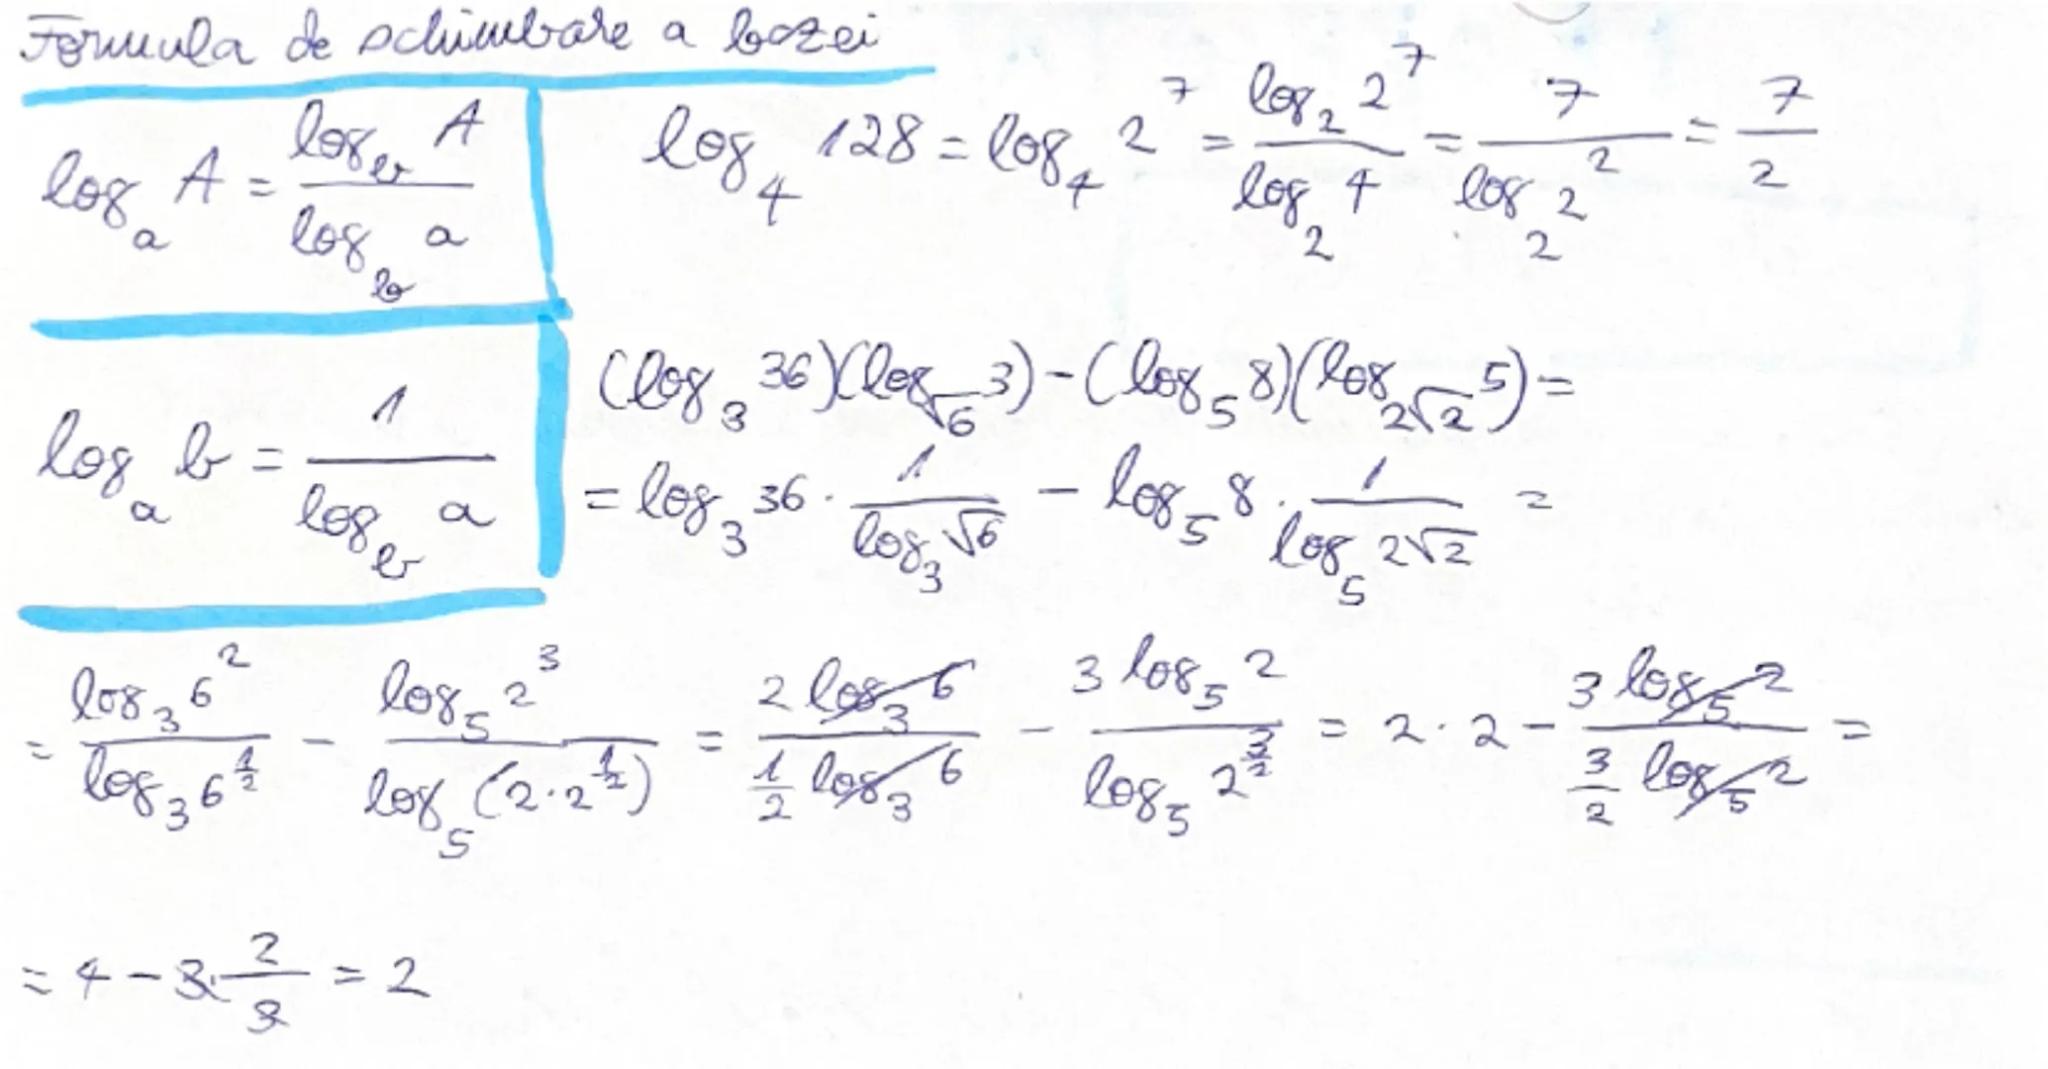 Formula de schimbare a bazei
log_a A = (log_b A)/(log_b a)
log_4 128 = log_4 2^7 = (log_2 2^7)/(log_2 4) = 7/(log_2 2^2) = 7/2
log_a b = 1/(log_b a)
(log_3 36)(log_√6 3) - (log_5 8)(log_2√2 5) =
= log_3 36 · 1/(log_3 √6) - log_5 8 · 1/(log_5 2√2) =
= (log_3 6^2)/(log_3 6^(1/2)) - (log_5 2^3)/(log_5 (2·2^(1/2))) = (2 log_3 6)/(1/2 log_3 6) - (3 log_5 2)/(log_5 2^(3/2)) = 2·2 - (3 log_5 2)/(3/2 log_5 2) =
= 4 - 3·2/3 = 2